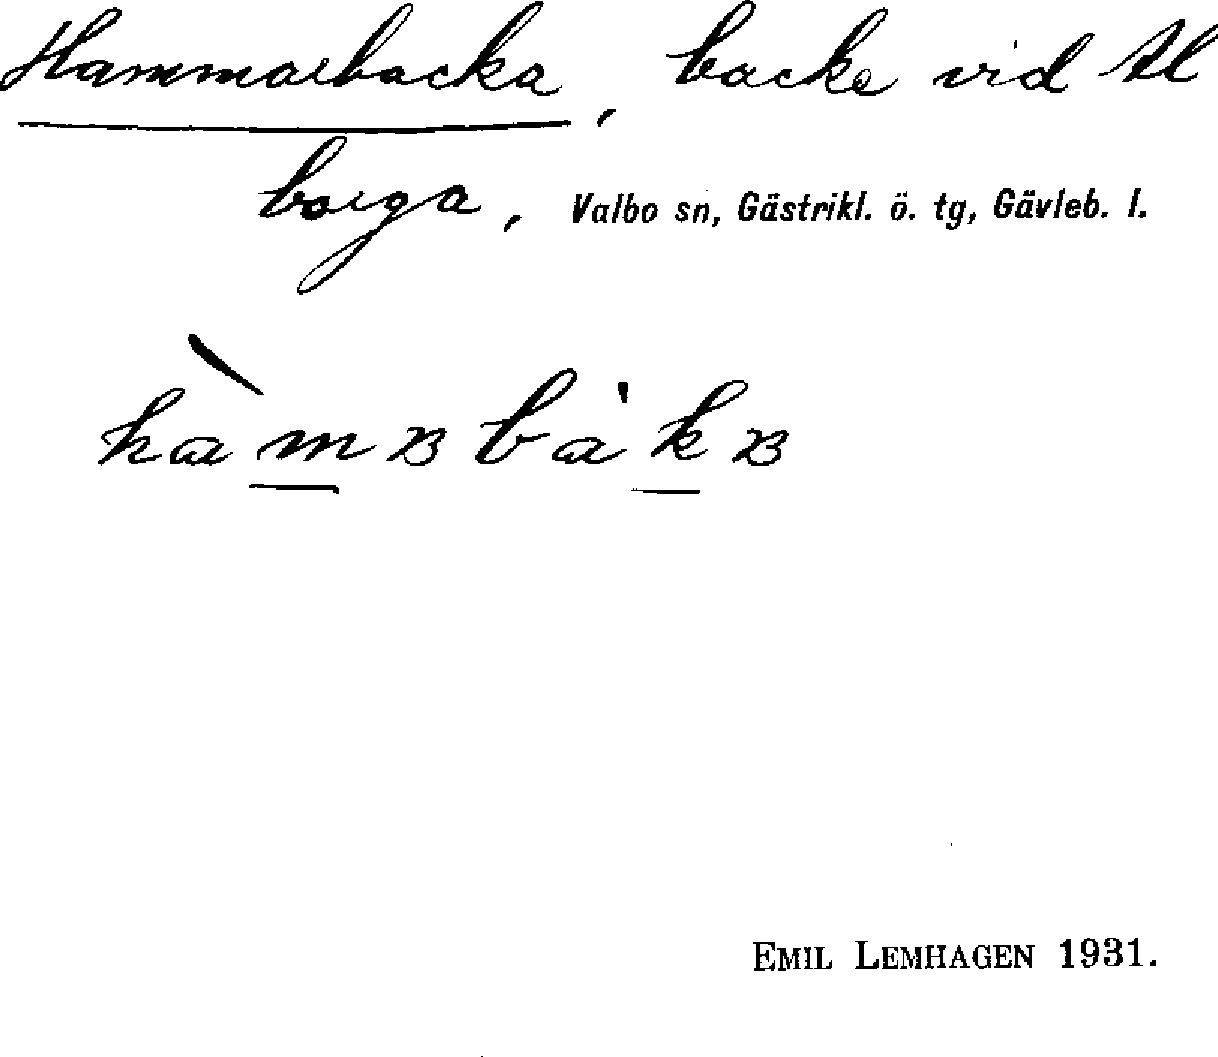 Hammarbacka, backe vid Al
borga, Valbo sn, Gästrikl. ö. tg, Gävleb. l.
hàmɞba'kɞ
EMIL LEMHAGEN 1931.